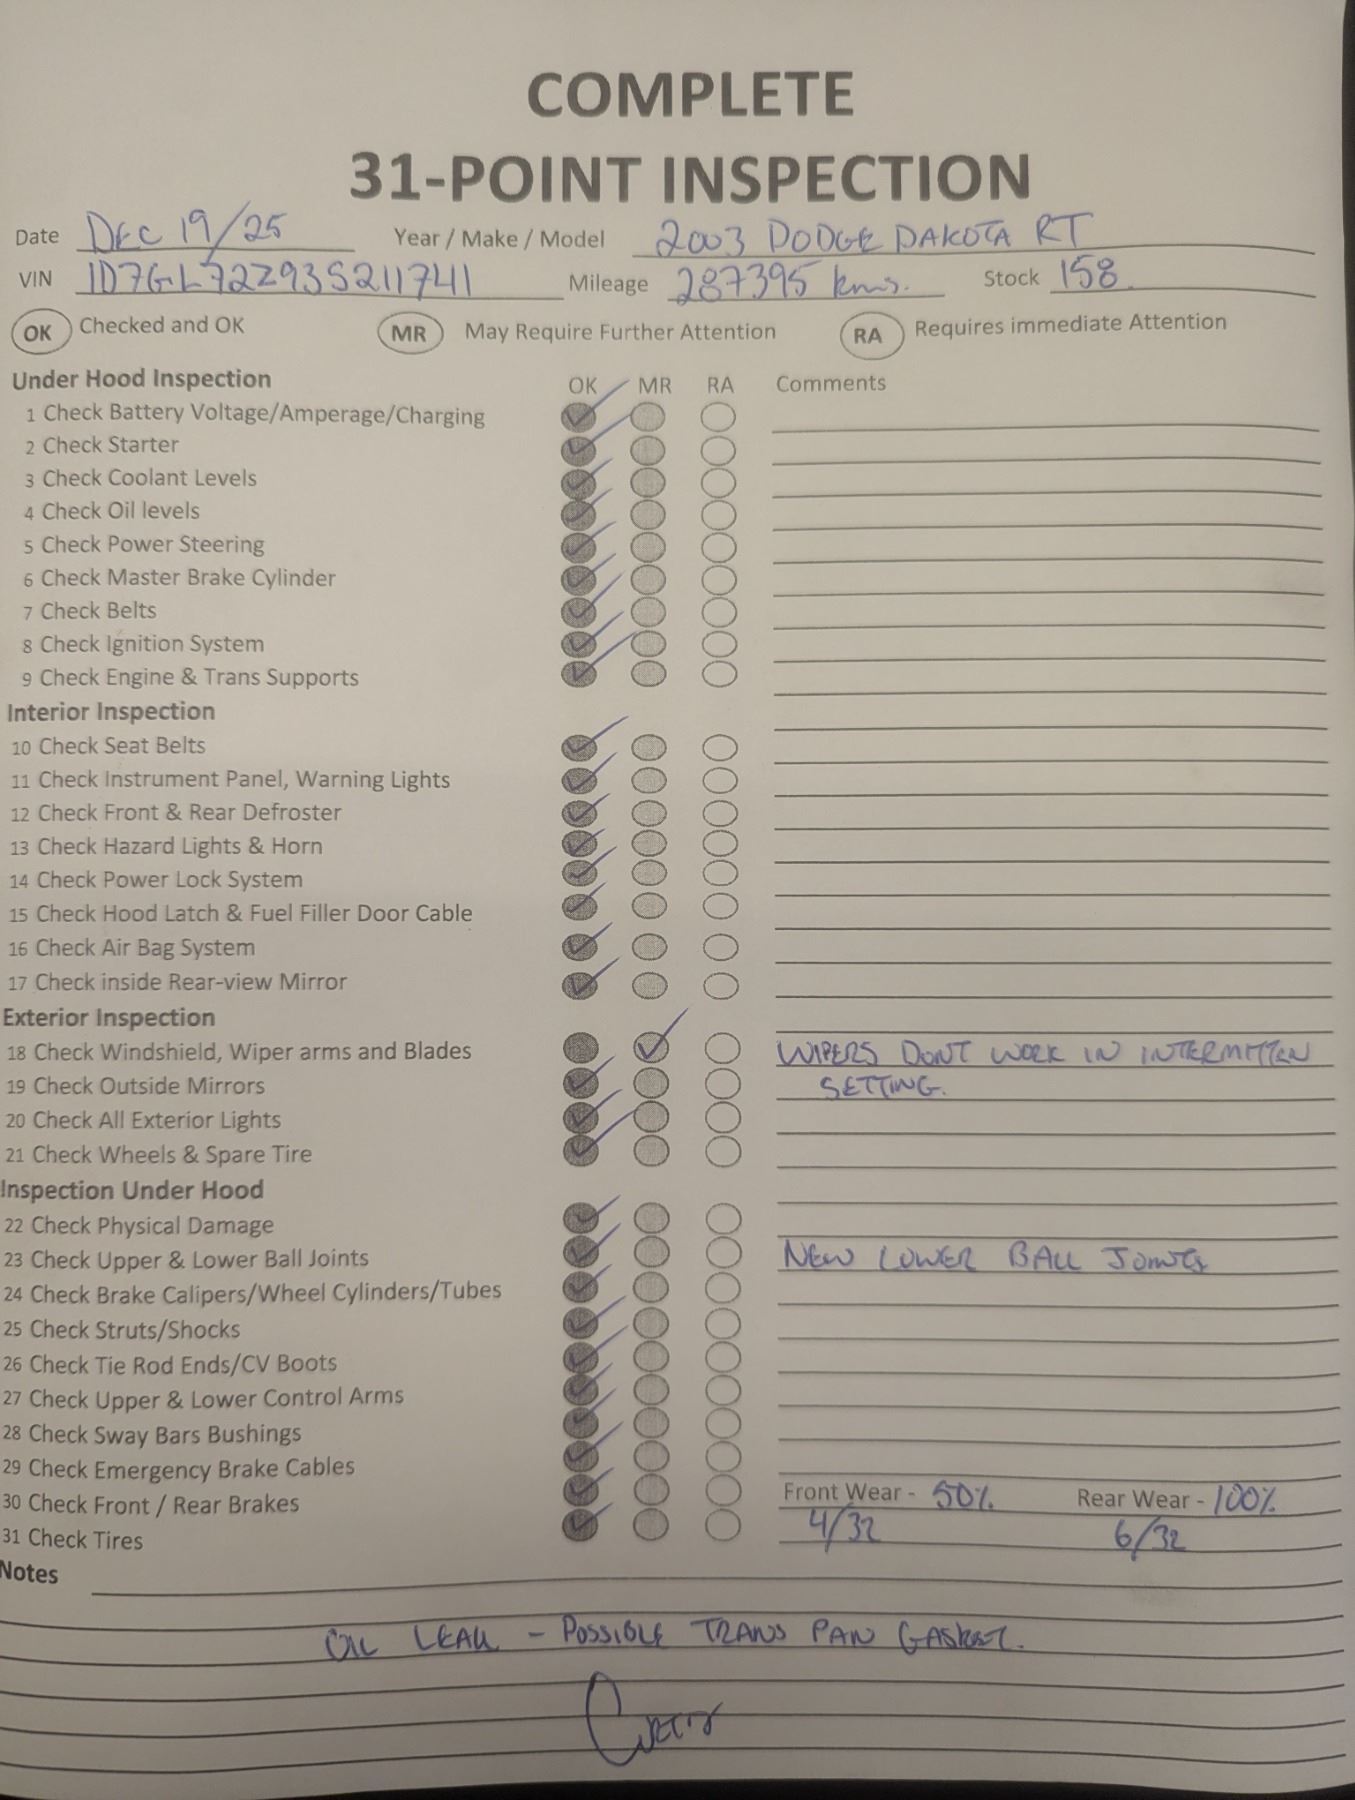 COMPLETE
31-POINT INSPECTION
Date DEC 19/25 Year / Make / Model 2003 DODGE DAKOTA RT
VIN 1D7GL72Z93S211741 Mileage 287395 kms. Stock 158
OK Checked and OK MR May Require Further Attention RA Requires immediate Attention
Under Hood Inspection OK MR RA Comments
1 Check Battery Voltage/Amperage/Charging
2 Check Starter
3 Check Coolant Levels
4 Check Oil levels
5 Check Power Steering
6 Check Master Brake Cylinder
7 Check Belts
8 Check Ignition System
9 Check Engine & Trans Supports
Interior Inspection
10 Check Seat Belts
11 Check Instrument Panel, Warning Lights
12 Check Front & Rear Defroster
13 Check Hazard Lights & Horn
14 Check Power Lock System
15 Check Hood Latch & Fuel Filler Door Cable
16 Check Air Bag System
17 Check inside Rear-view Mirror
Exterior Inspection
18 Check Windshield, Wiper arms and Blades WIPERS DONT WORK IN INTERMITTEN
19 Check Outside Mirrors SETTING.
20 Check All Exterior Lights
21 Check Wheels & Spare Tire
Inspection Under Hood
22 Check Physical Damage
23 Check Upper & Lower Ball Joints NEW LOWER BALL JOINTS
24 Check Brake Calipers/Wheel Cylinders/Tubes
25 Check Struts/Shocks
26 Check Tie Rod Ends/CV Boots
27 Check Upper & Lower Control Arms
28 Check Sway Bars Bushings
29 Check Emergency Brake Cables
30 Check Front / Rear Brakes Front Wear - 50% Rear Wear - 100%
31 Check Tires 4/32 6/32
Notes
OIL LEAK - POSSIBLE TRANS PAN GASKET.